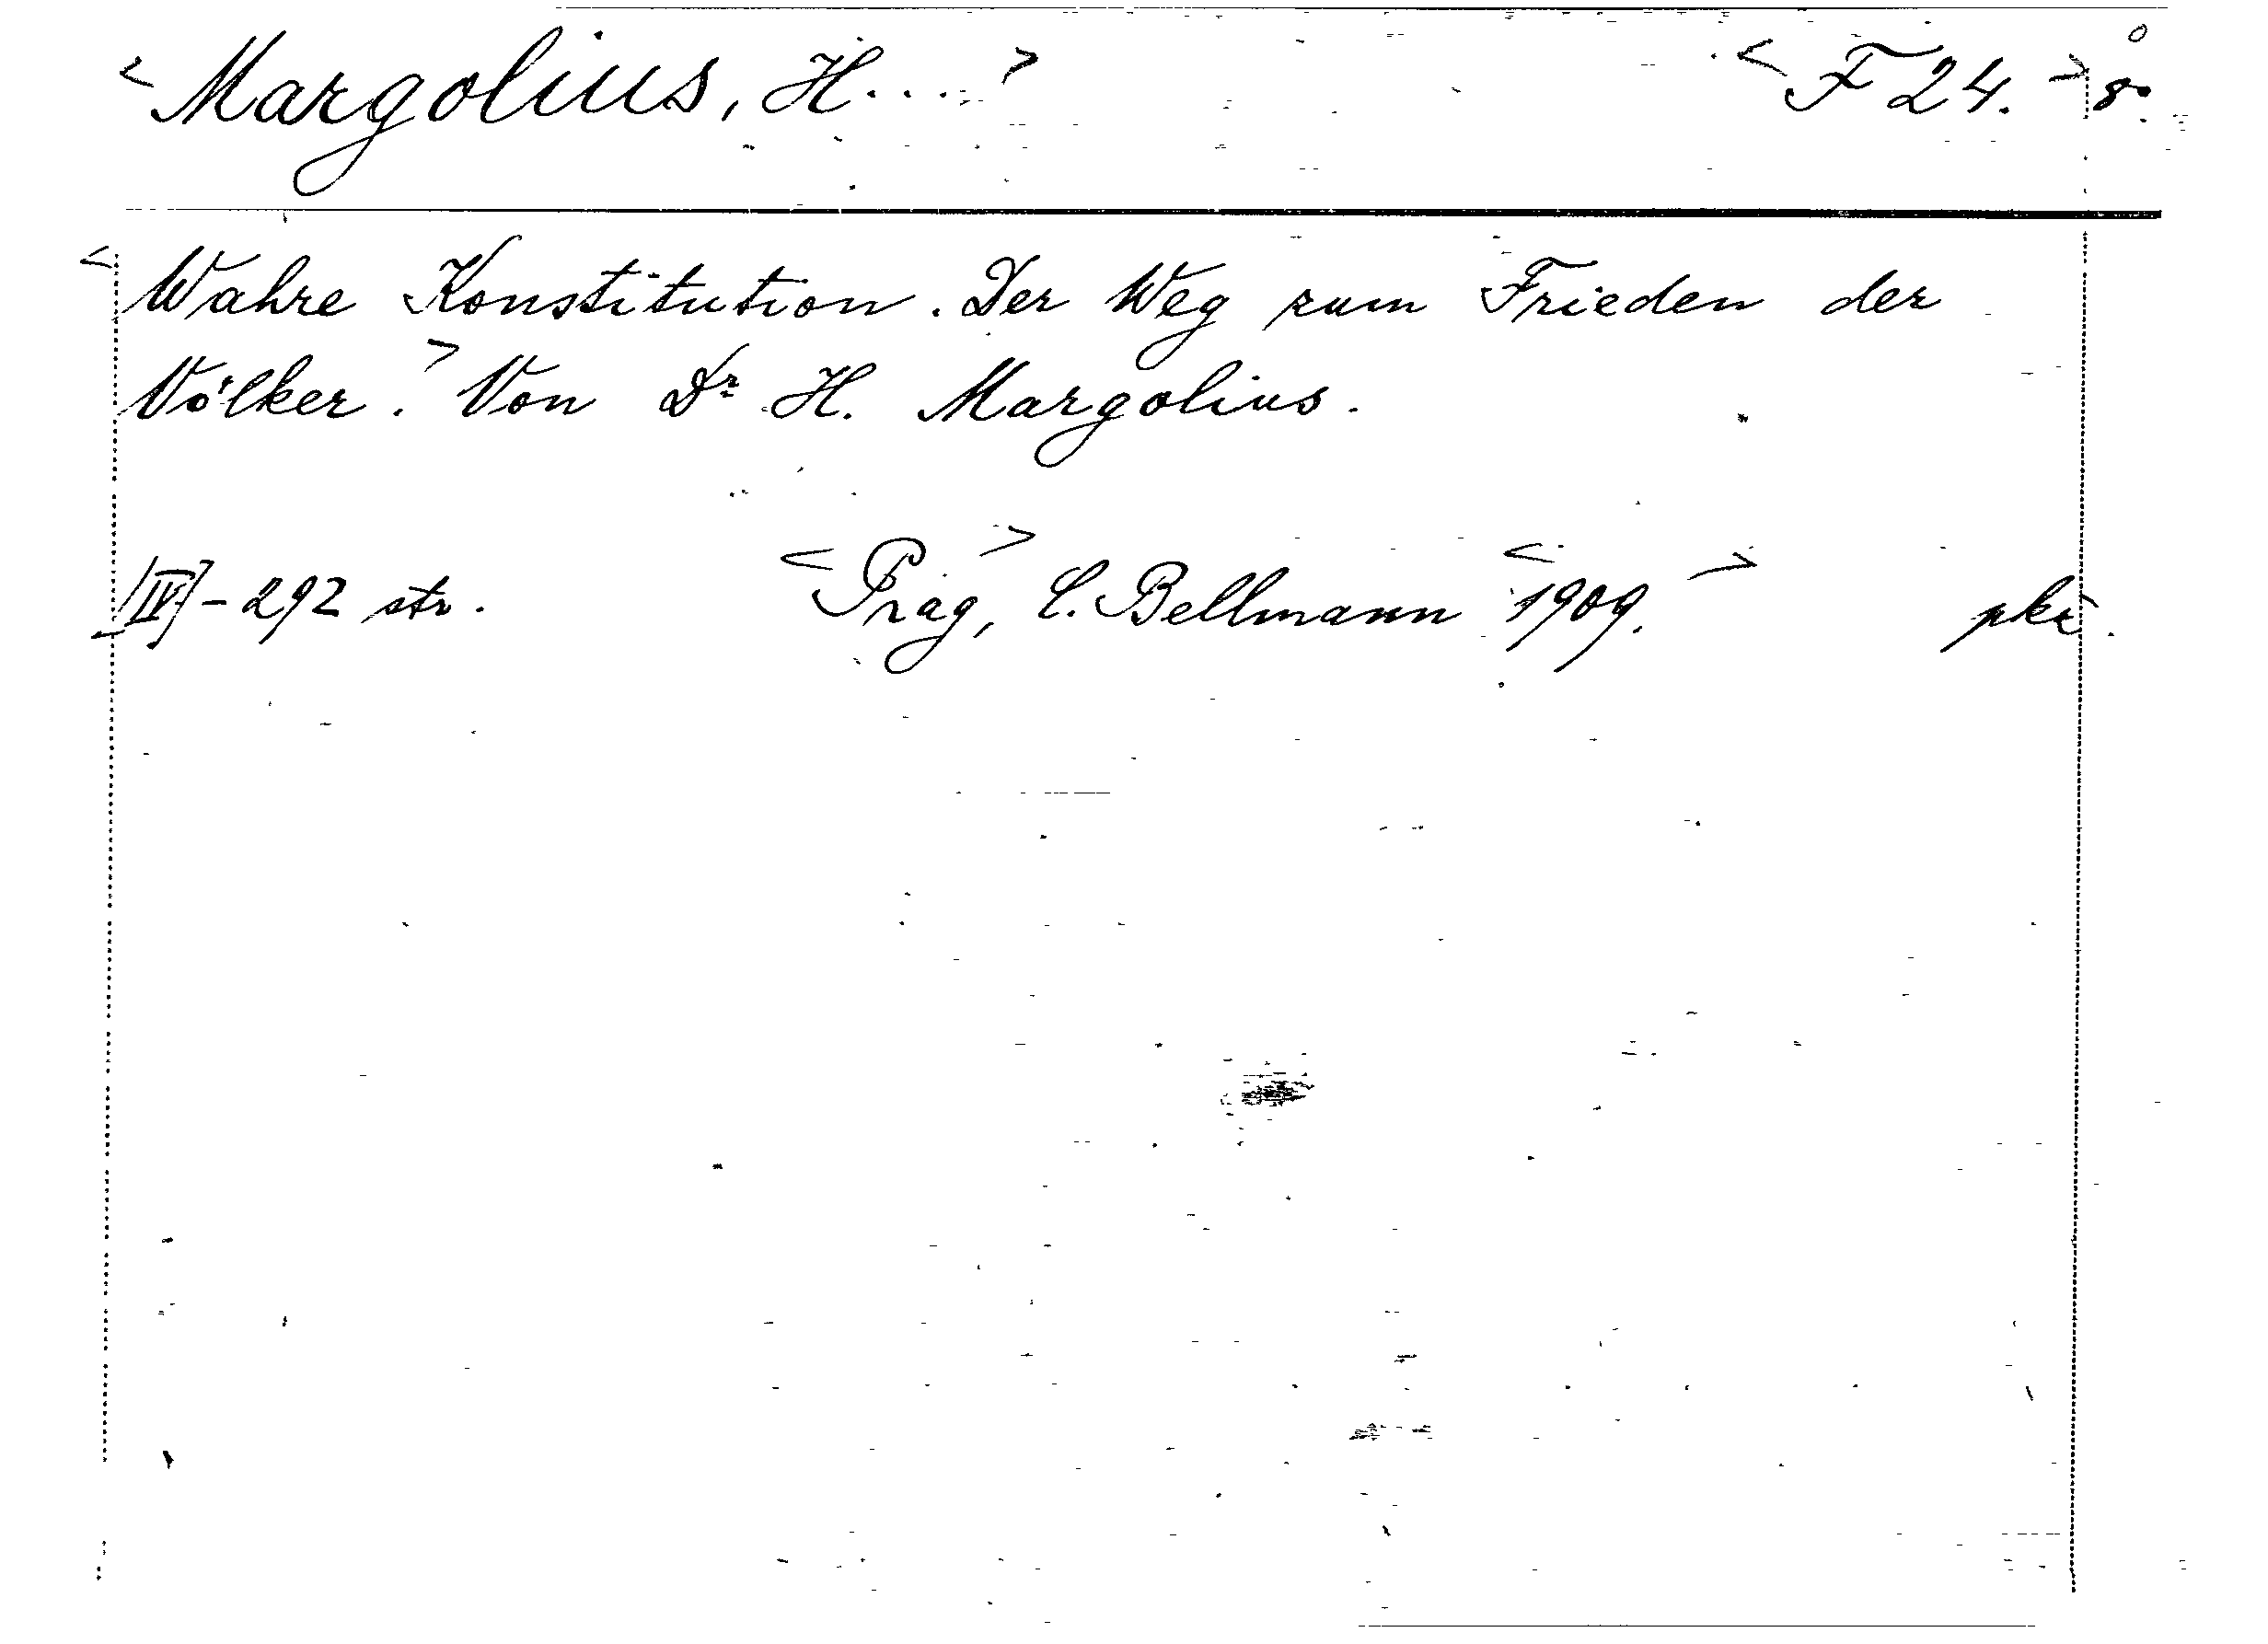 <Margolius, H...> <F 24.> 8°
<Wahre Konstitution. Der Weg zum Frieden der
Völker.> Von Dr H. Margolius.
[IV]-292 str. <Prag,> C. Bellmann <1909.>